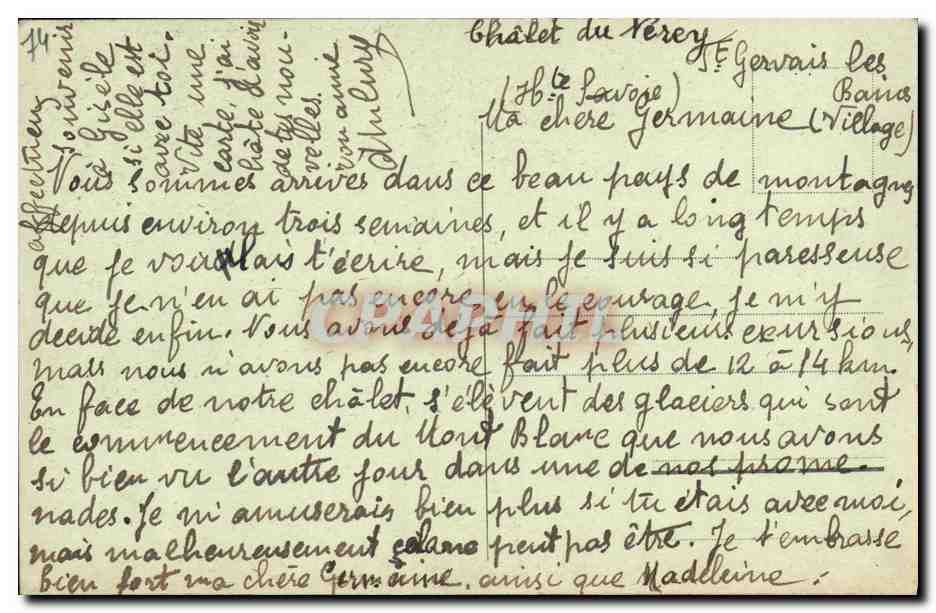 74
Châlet du Nérey
St Gervais les
Bains
(Hte Savoie)
(Village)
Ma chère Germaine
Nous sommes arrivés dans ce beau pays de montagnes
depuis environ trois semaines, et il y a long temps
que je voulais t'écrire, mais je suis si paresseuse
que je n'en ai pas encore eu le courage, je m'y
decide enfin. Nous avons déjà fait plusieurs excursions,
mais nous n'avons pas encore fait plus de 12 à 14 km.
En face de notre châlet, s'élèvent des glaciers qui sont
le commencement du Mont Blanc que nous avons
si bien vu l'autre jour dans une de nos prome-
nades. Je m'amuserais bien plus si tu étais avec moi,
mais malheureusement cela ne peut pas être. Je t'embrasse
bien fort ma chère Germaine, ainsi que Madeleine.
affectueux
souvenir
à Gisèle
si elle est
avec toi.
Vite une
carte, j'ai
hâte d'avoir
de tes nou-
velles.
ton amie
CPAPHIL